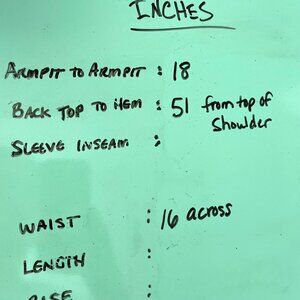 INCHES
ARMPIT TO ARMPIT : 18
BACK TOP TO HEM : 51 from top of
Shoulder
SLEEVE INSEAM :
WAIST : 16 across
LENGTH :
RISE